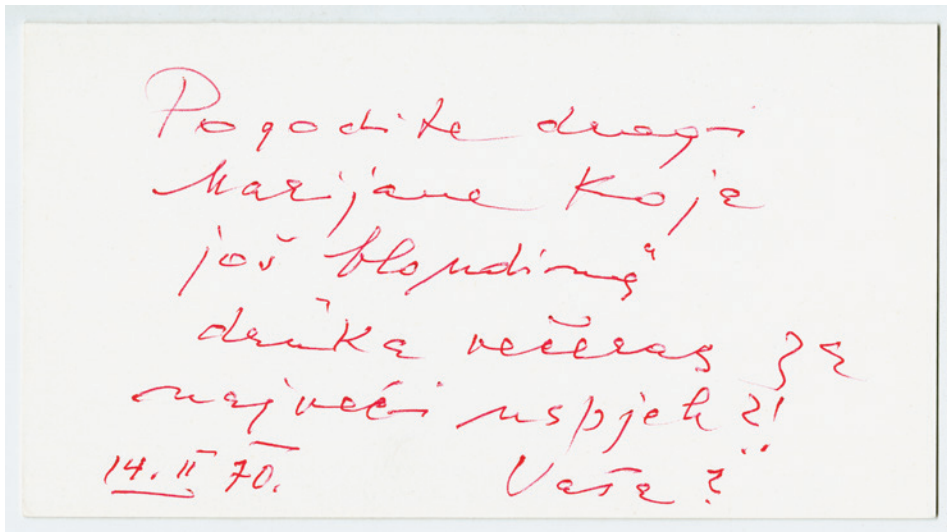 Pogodite dragi
Marijane Koja
još blondina"
druka večeras za
najveći uspjeh?!
14. II 70. Vaša?